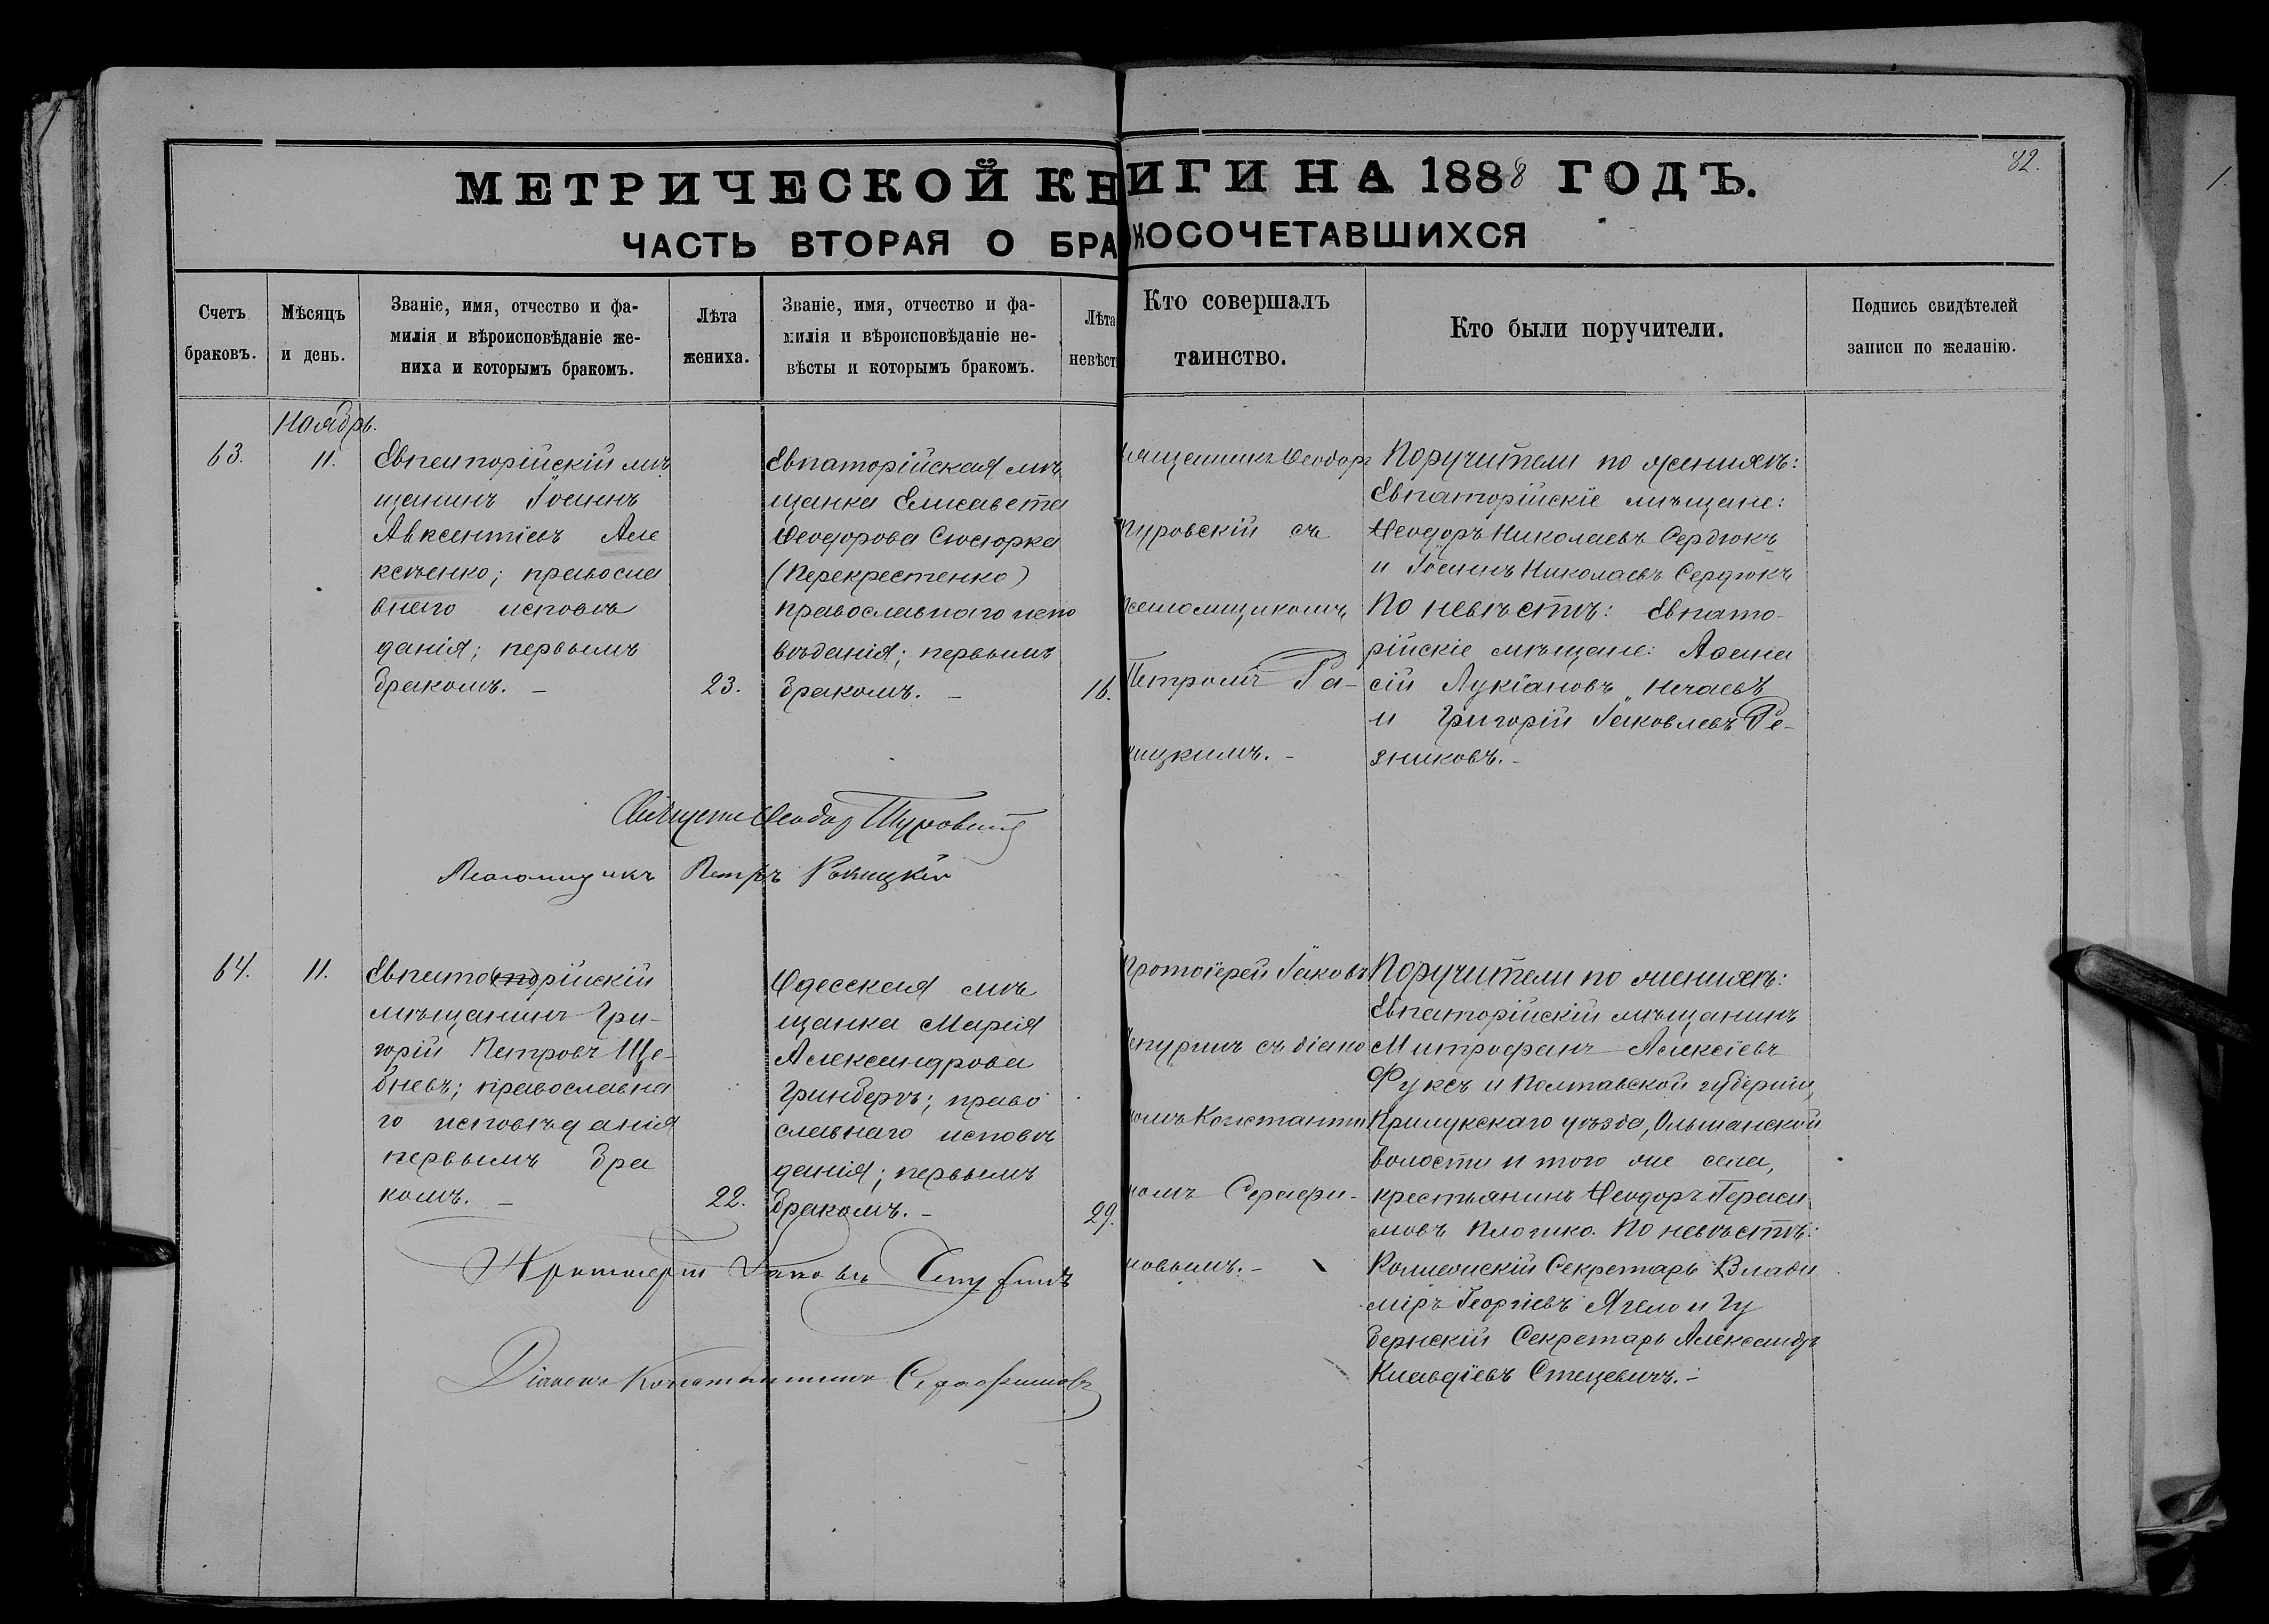 МЕТРИЧЕСКОЙ КНИГИ НА 1888 ГОДЪ.
82.
1.
ЧАСТЬ ВТОРАЯ О БРАКОСОЧЕТАВШИХСЯ
Счетъ браковъ.
Мѣсяцъ и день.
Званіе, имя, отчество и фа-
милія и вѣроисповѣданіе же-
ниха и которымъ бракомъ.
Лѣта жениха.
Званіе, имя, отчество и фа-
милія и вѣроисповѣданіе не-
вѣсты и которымъ бракомъ.
Лѣта невѣст
Кто совершалъ
таинство.
Кто были поручители.
Подпись свидѣтелей
записи по желанію.
Ноябрь.
63.
11.
Евпаторійскій мѣ
щанинъ Іоаннъ
Авксентіевъ Але
ксѣенко; правосла
внаго исповѣ
данія; первымъ
бракомъ. –
23.
Евпаторійская мѣ
щанка Елисавета
Ѳеодорова Слюсюрка
(Перекрестенко)
православнаго испо
вѣданія; первымъ
бракомъ. –
16.
ященникъ Ѳеодоръ
уровскій съ
псаломщикомъ
Петромъ Ра-
ицкимъ. –
Поручители по женихѣ:
Евпаторійскіе мѣщане:
Ѳеодоръ Николаевъ Сердюкъ
и Іоаннъ Николаевъ Сердюкъ
По невѣстѣ: Евпато-
рійскіе мѣщане: Аѳана
сій Лукіановъ Нечаевъ
и Григорій Іаковлевъ Ре-
зниковъ. –
Священн Ѳеодор Туровскій
Псаломщикъ Петръ Ракицкій
64.
11.
Евпаторійскій
мѣщанинъ Гри-
горій Петровъ Ще-
бневъ; православна
го исповѣданія
первымъ бра
комъ. –
22.
Одесская мѣ
щанка Марія
Александрова
Гринбергъ; право
славнаго исповѣ
данія; первымъ
бракомъ. –
29.
Протоіерей Іаковъ
Чепуринъ съ діако
номъ Константи
номъ Серафи-
мовымъ. –
Поручители по женихѣ:
Евпаторійскій мѣщанинъ
Митрофанъ Алексіевъ
Фуксъ и Полтавской губерніи,
Прилукскаго уѣзда, Ольшанской
волости и того же села,
крестьянинъ Ѳеодоръ Гераси
мовъ Плошко. По невѣстѣ:
Коллежскій Секретарь Влади
міръ Георгіевъ Ягело и Гу
бернскій Секретарь Александръ
Клавдіевъ Стецевичъ. –
Протоіерей Іаковъ Чепуринъ
Діаконъ Константинъ Серафимовъ